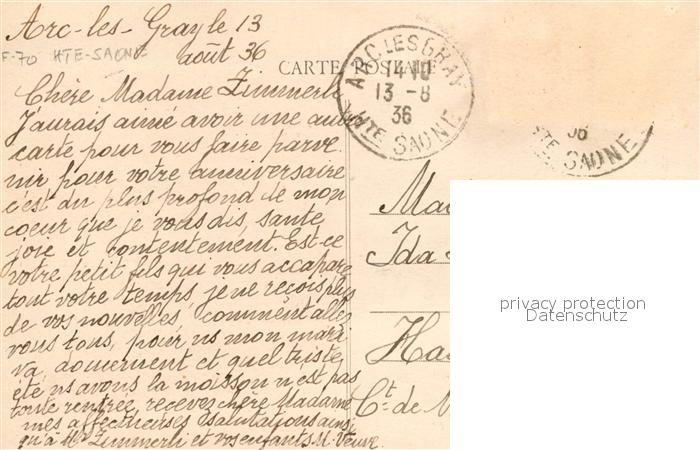 Arc-les-Gray le 13
août 36
F-70 HTE-SAONE
CARTE POSTALE
ARC LES GRAY
14 10
13 -8
36
HTE SAONE
36
HTE SAONE
Chère Madame Zimmerli
J'aurais aimé avoir une autre
carte pour vous faire parve
nir pour votre anniversaire
c'est du plus profond de mon
coeur que je vous dis, santé
joie et contentement. Est-ce
votre petit fils qui vous accapare
tout votre temps, je ne reçois plus
de vos nouvelles, comment allez
vous tous, pour ns mon mari
va doucement et quel triste
été ns avons la moisson n'est pas
toute rentrée, recevez chère Madame
mes affectueuses salutations ainsi
qu'à Mr Zimmerli et vos enfants M. Veuve
Ma
Ida
Ha
Ct. de
privacy protection
Datenschutz